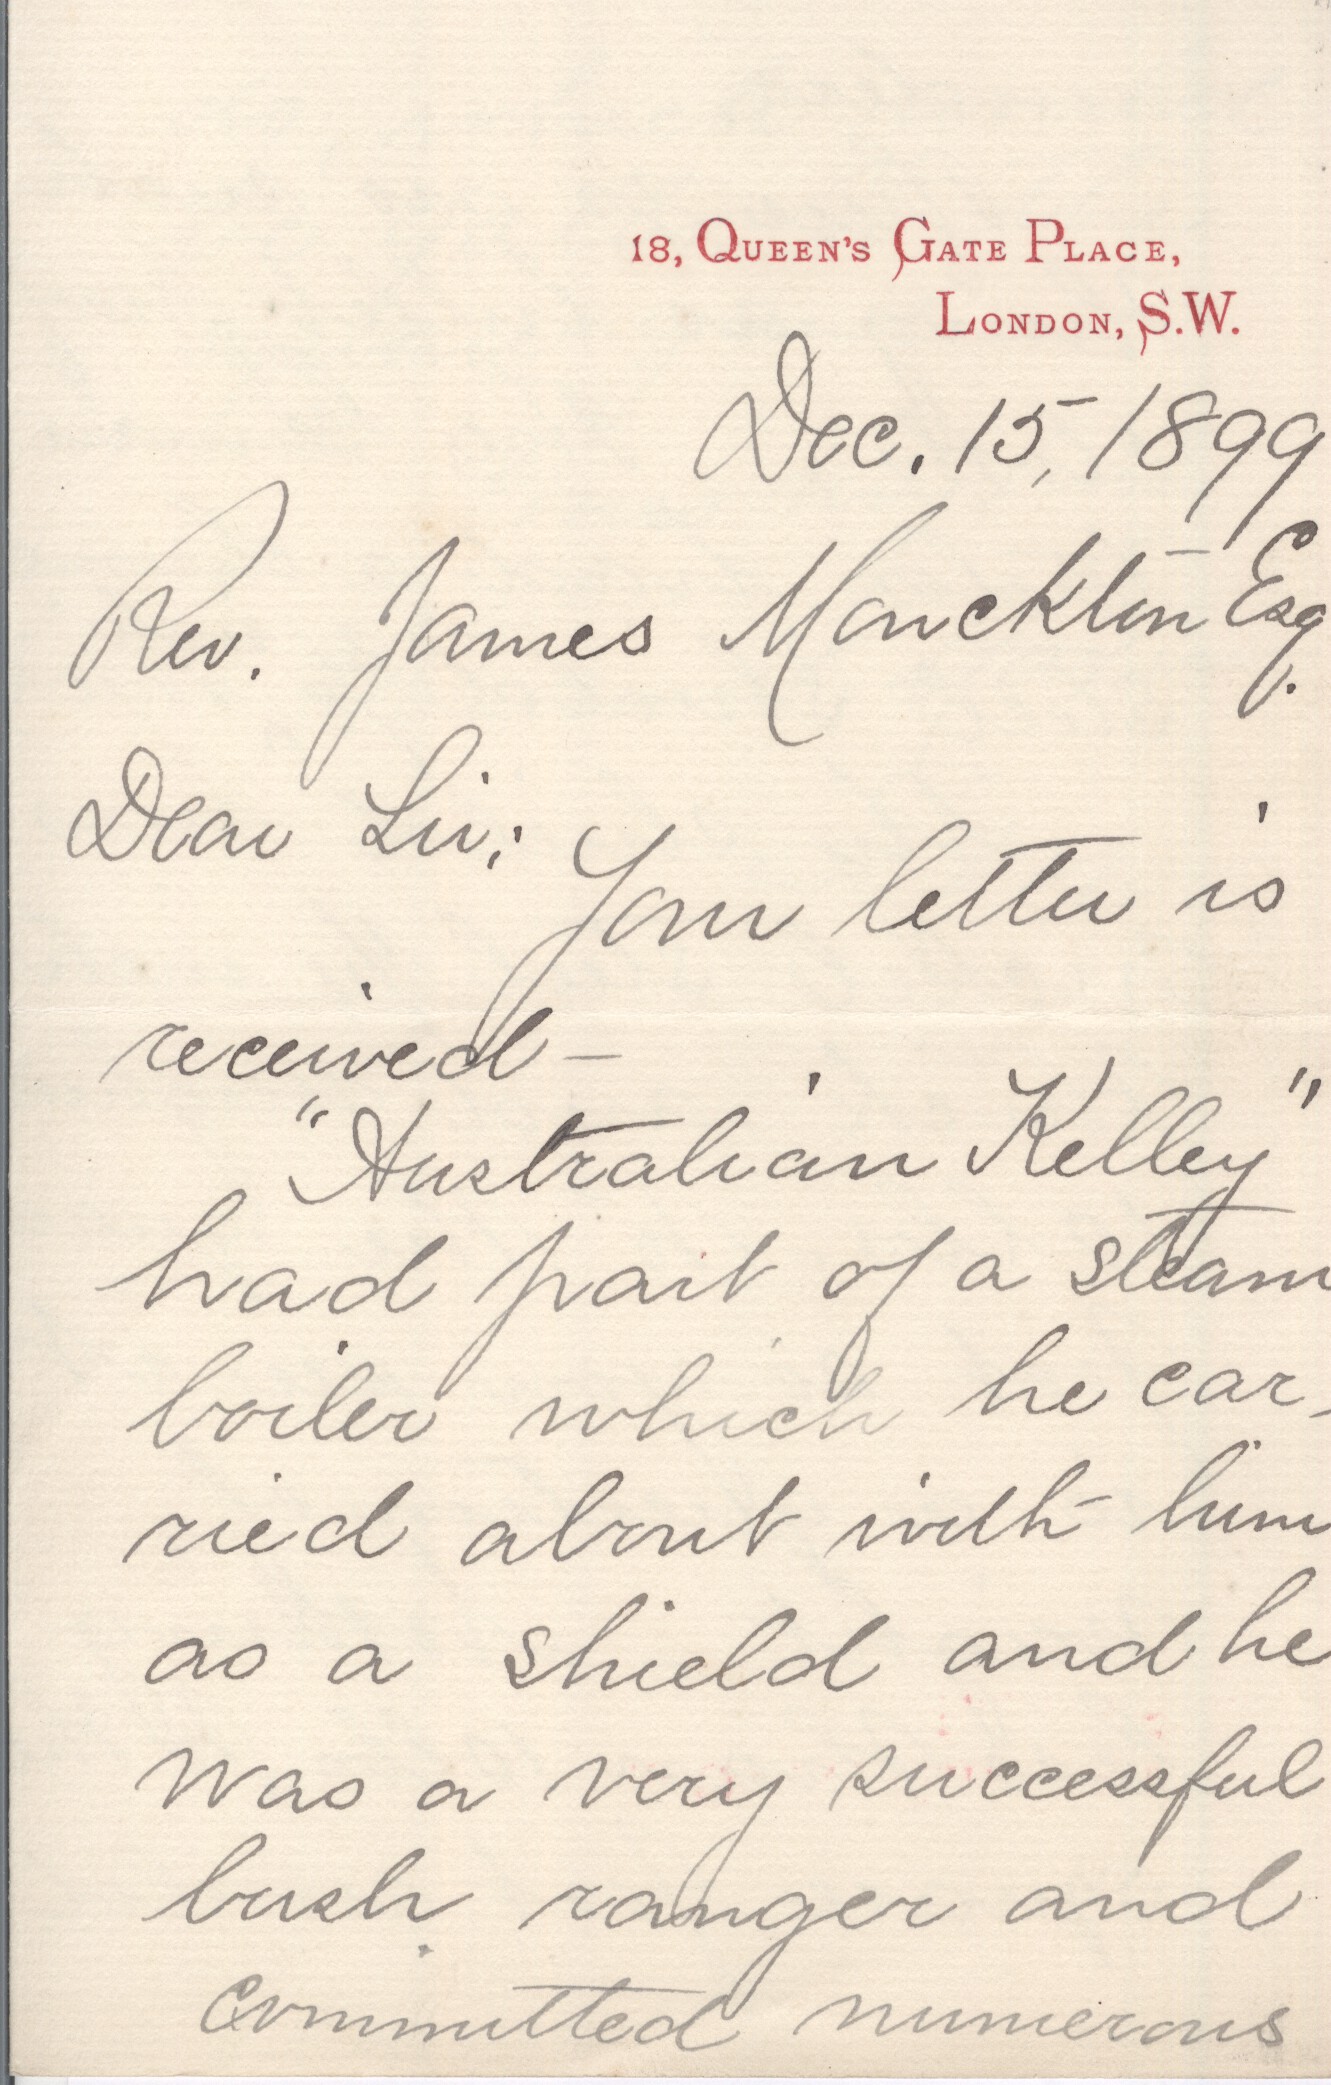 18, Queen's Gate Place,
London, S.W.
Dec. 15, 1899
Rev. James Monckton Esq.
Dear Sir;
Your letter is
received –
"Australian Kelley"
had part of a steam
boiler which he car-
ried about with him
as a shield and he
was a very successful
bush ranger and
committed numerous